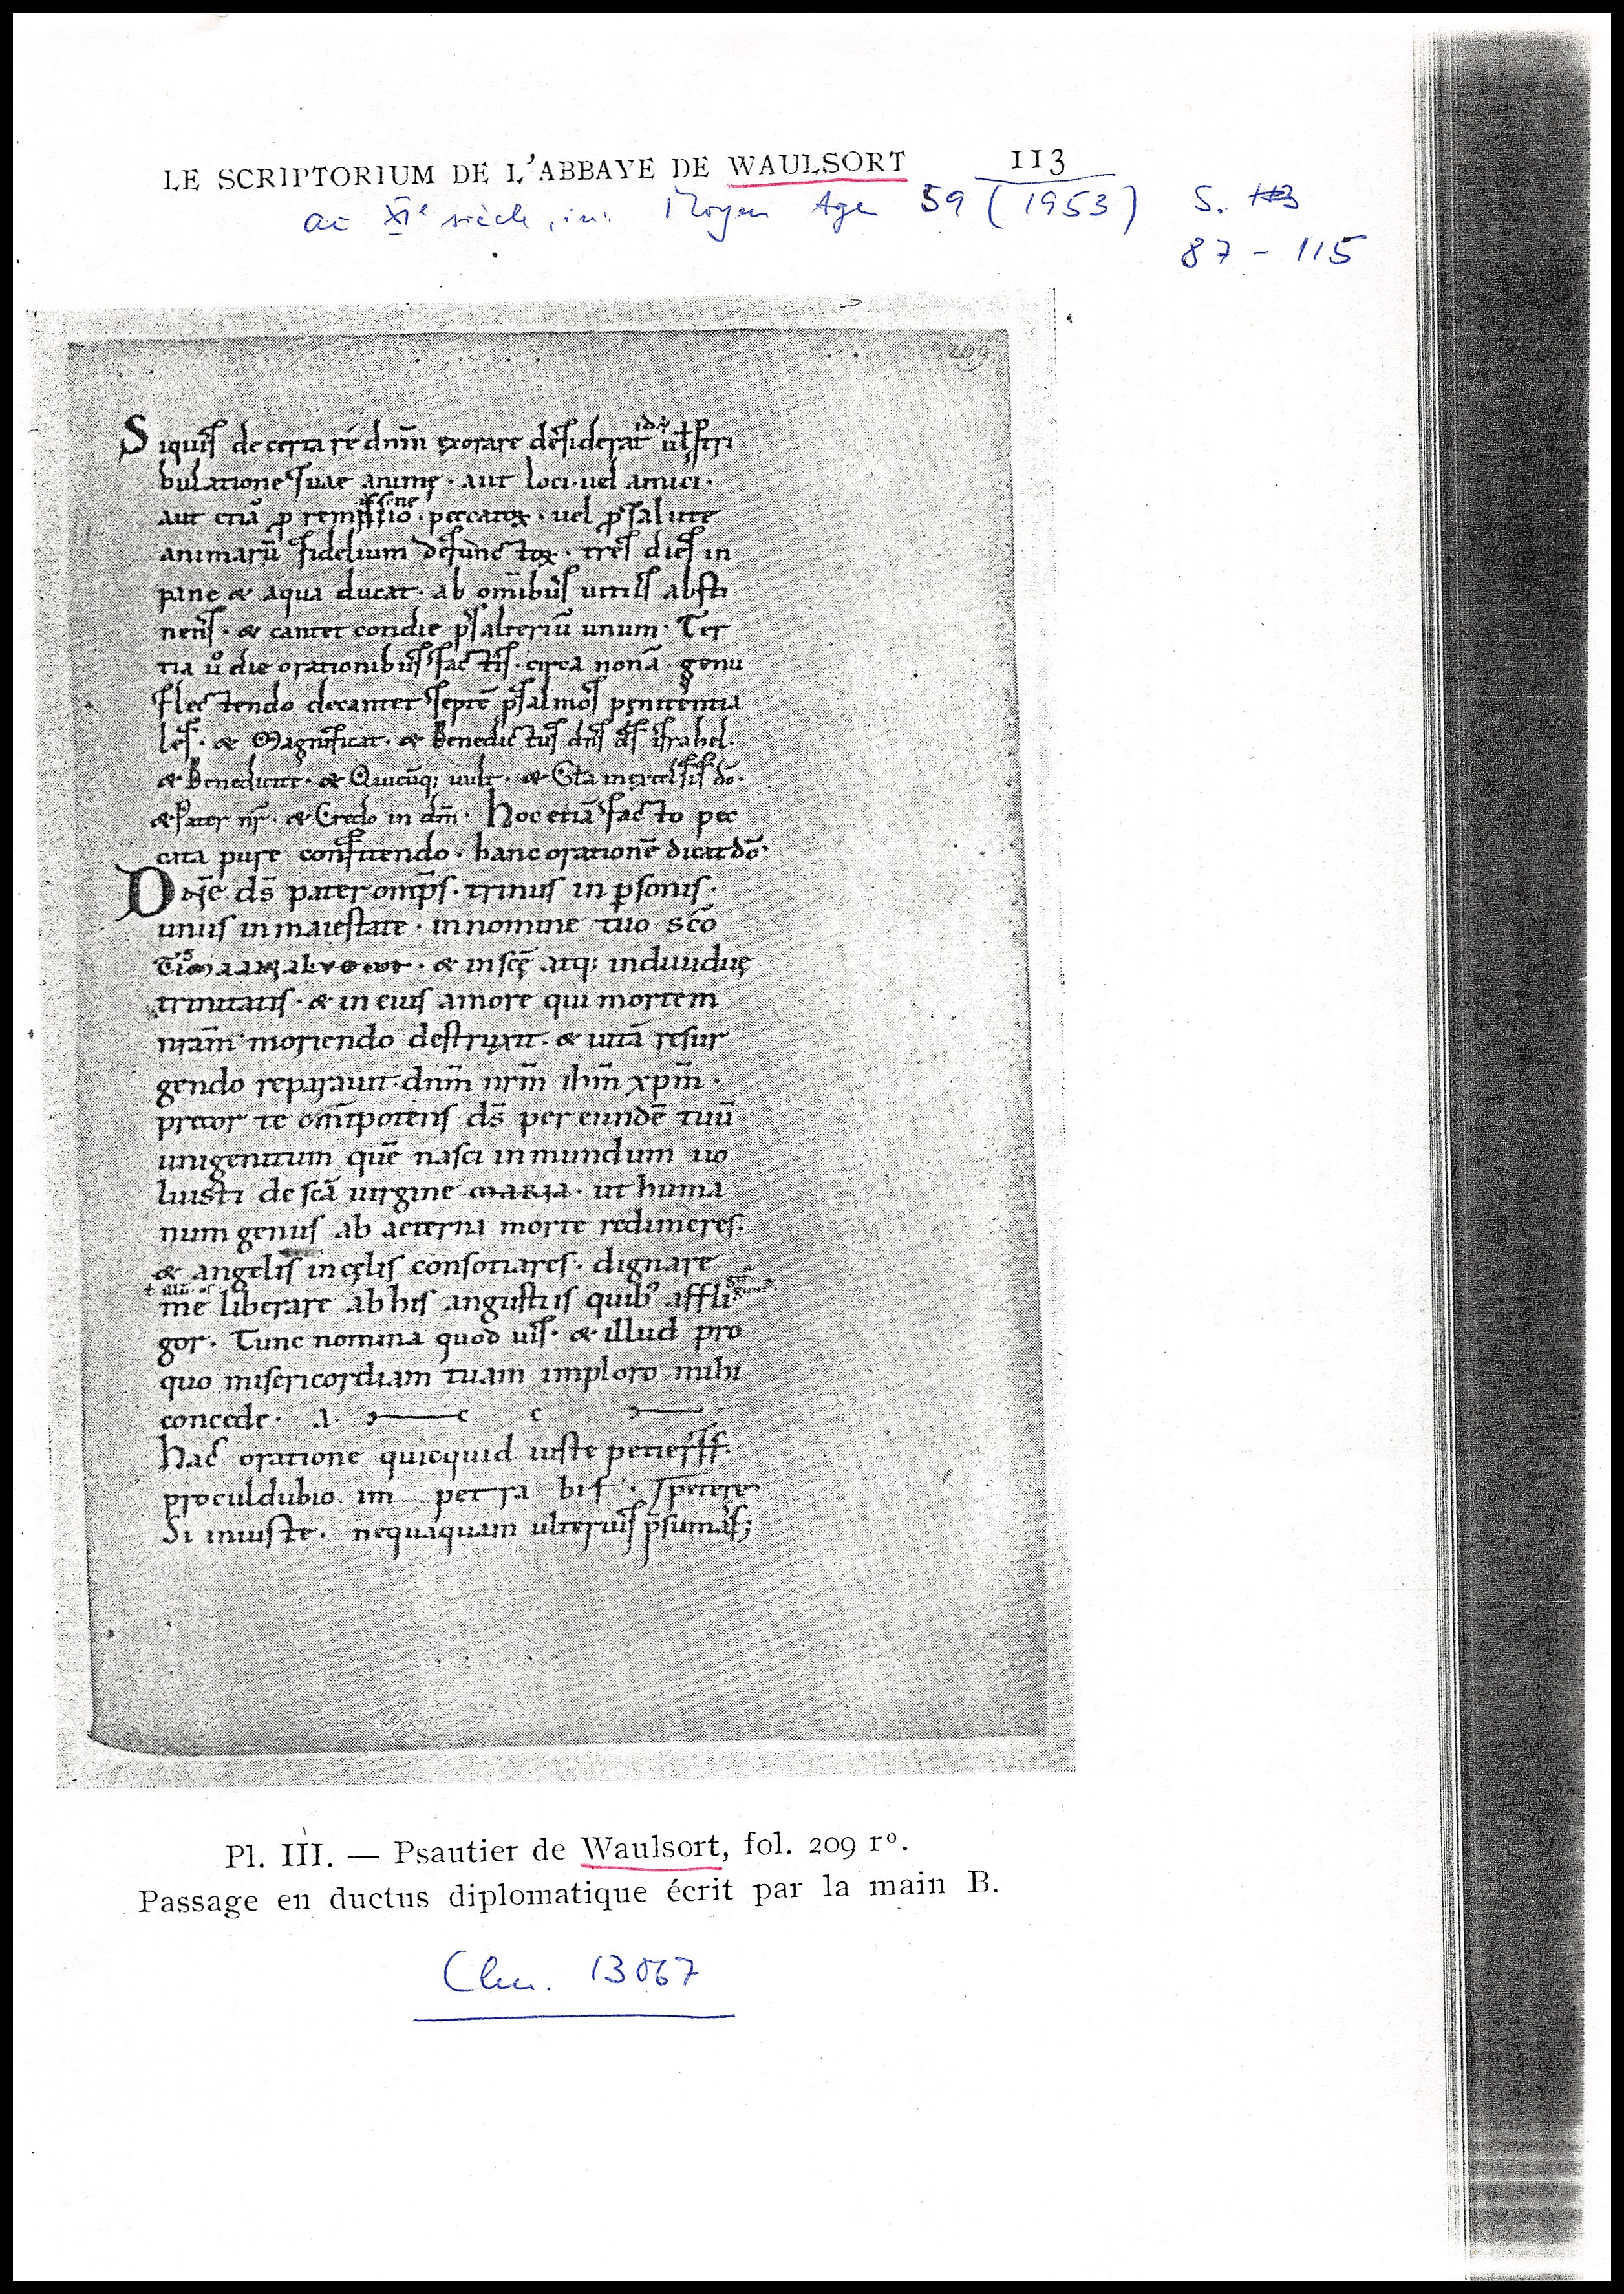 LE SCRIPTORIUM DE L'ABBAYE DE WAULSORT 113
au XIe siècle, in: Moyen Age 59 (1953) S. 113
87 - 115
209
Siquis de certa re dn̄m exorare desiderat
bulatione suae animę · aut loci · uel amici ·
aut etiā ꝓ remissio · peccatoꝝ · uel ꝓ salute
animarū fidelium defunctoꝝ · tres dies in
pane & aqua ducat · ab om̄ibus uitiis absti
nens · & cantet cotidie psalteriū unum · Ter
tia ůo die orationibus factis · circa nonā · genu
flectendo decantet septē psalmos penitentia
les · & Magnificat · & Benedictus dn̄s ds̄ israhel ·
& Benedicite · & Quicūq; uult · & Gl̄a in excelsis dō ·
& Pater nr̄ · & Credo in dm̄ · Hoc etiā facto pec
cata pure confitendo · hanc orationē dicat dō ·
Dn̄e ds̄ pater omp̄s · trinus in ꝑsonis ·
unus in maiestate · in nomine tuo sc̄o
· & in sc̄ę atq; indiuiduę
trinitatis · & in eius amore qui mortem
nr̄am moriendo destruxit · & uitā resur
gendo reparauit dn̄m nr̄m ihm̄ xpm̄ ·
precor te om̄ipotens ds̄ per eundē tuū
unigenitum quē nasci in mundum uo
luisti de sc̄a uirgine MARIA · ut huma
num genus ab aeterna morte redimeres ·
& angelis in cęlis consociares · dignare
me liberare ab his angustiis quib' affli
gor · Tunc nomina quod uis · & illud pro
quo misericordiam tuam imploro mihi
concede ·
Hac oratione quicquid iuste petieris
proculdubio im petra bis · petere
Si iniuste · nequaquam ulterius p̄sumas;
Pl. III. — Psautier de Waulsort, fol. 209 rº.
Passage en ductus diplomatique écrit par la main B.
Clm. 13067